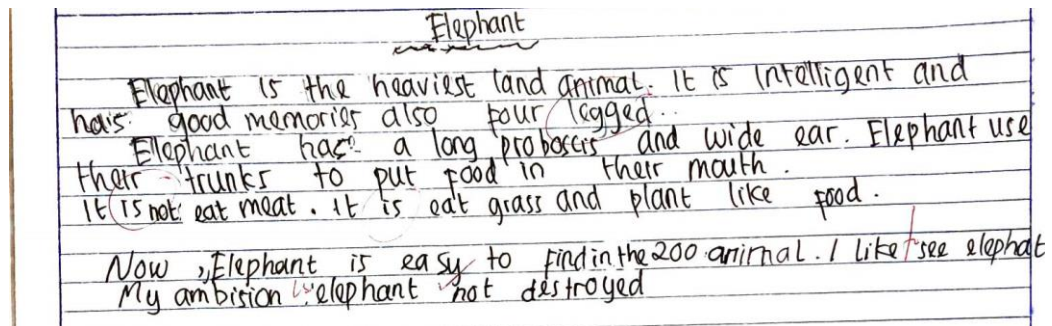 Elephant
Elephant is the heaviest land animal. It is Intelligent and
has good memories also four legged.
Elephant has a long proboscis and wide ear. Elephant use
their trunks to put food in their mouth.
It is not eat meat. It is eat grass and plant like food.
Now, Elephant is easy to find in the 200 animal. I like see elephat
My ambision elephant not destroyed